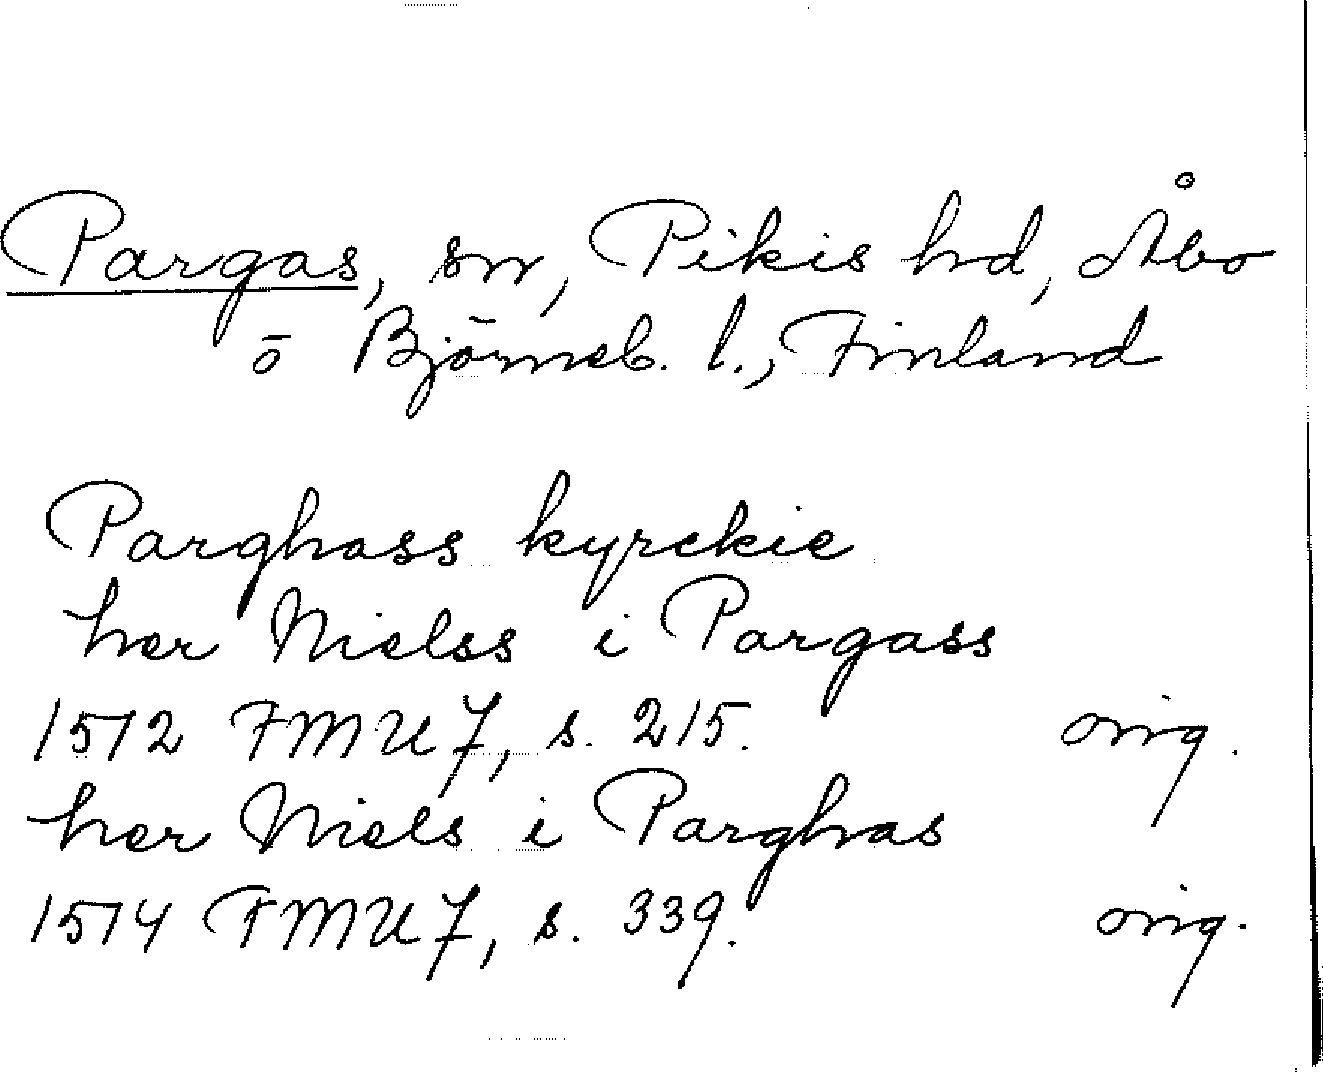 Pargas, sn, Pikis hd, Åbo
o Björneb. l., Finland
Parghass kyrckie
her Nielss i Pargass
1512 FMU 7, s. 215. orig.
her Niels i Parghas
1514 FMU 7, s. 339. orig.